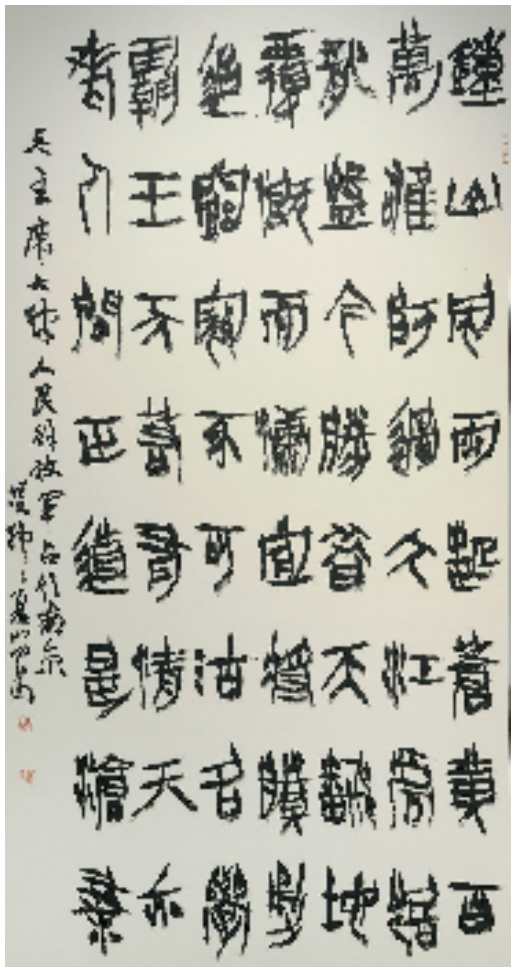 鐘山風雨起蒼黃百
萬雄師過大江虎踞
龍盤今勝昔天翻地
覆慨而慷宜將賸勇
追窮寇不可沽名學
霸王天若有情天亦
老人間正道是滄桑
毛主席七律人民解放軍占領南京